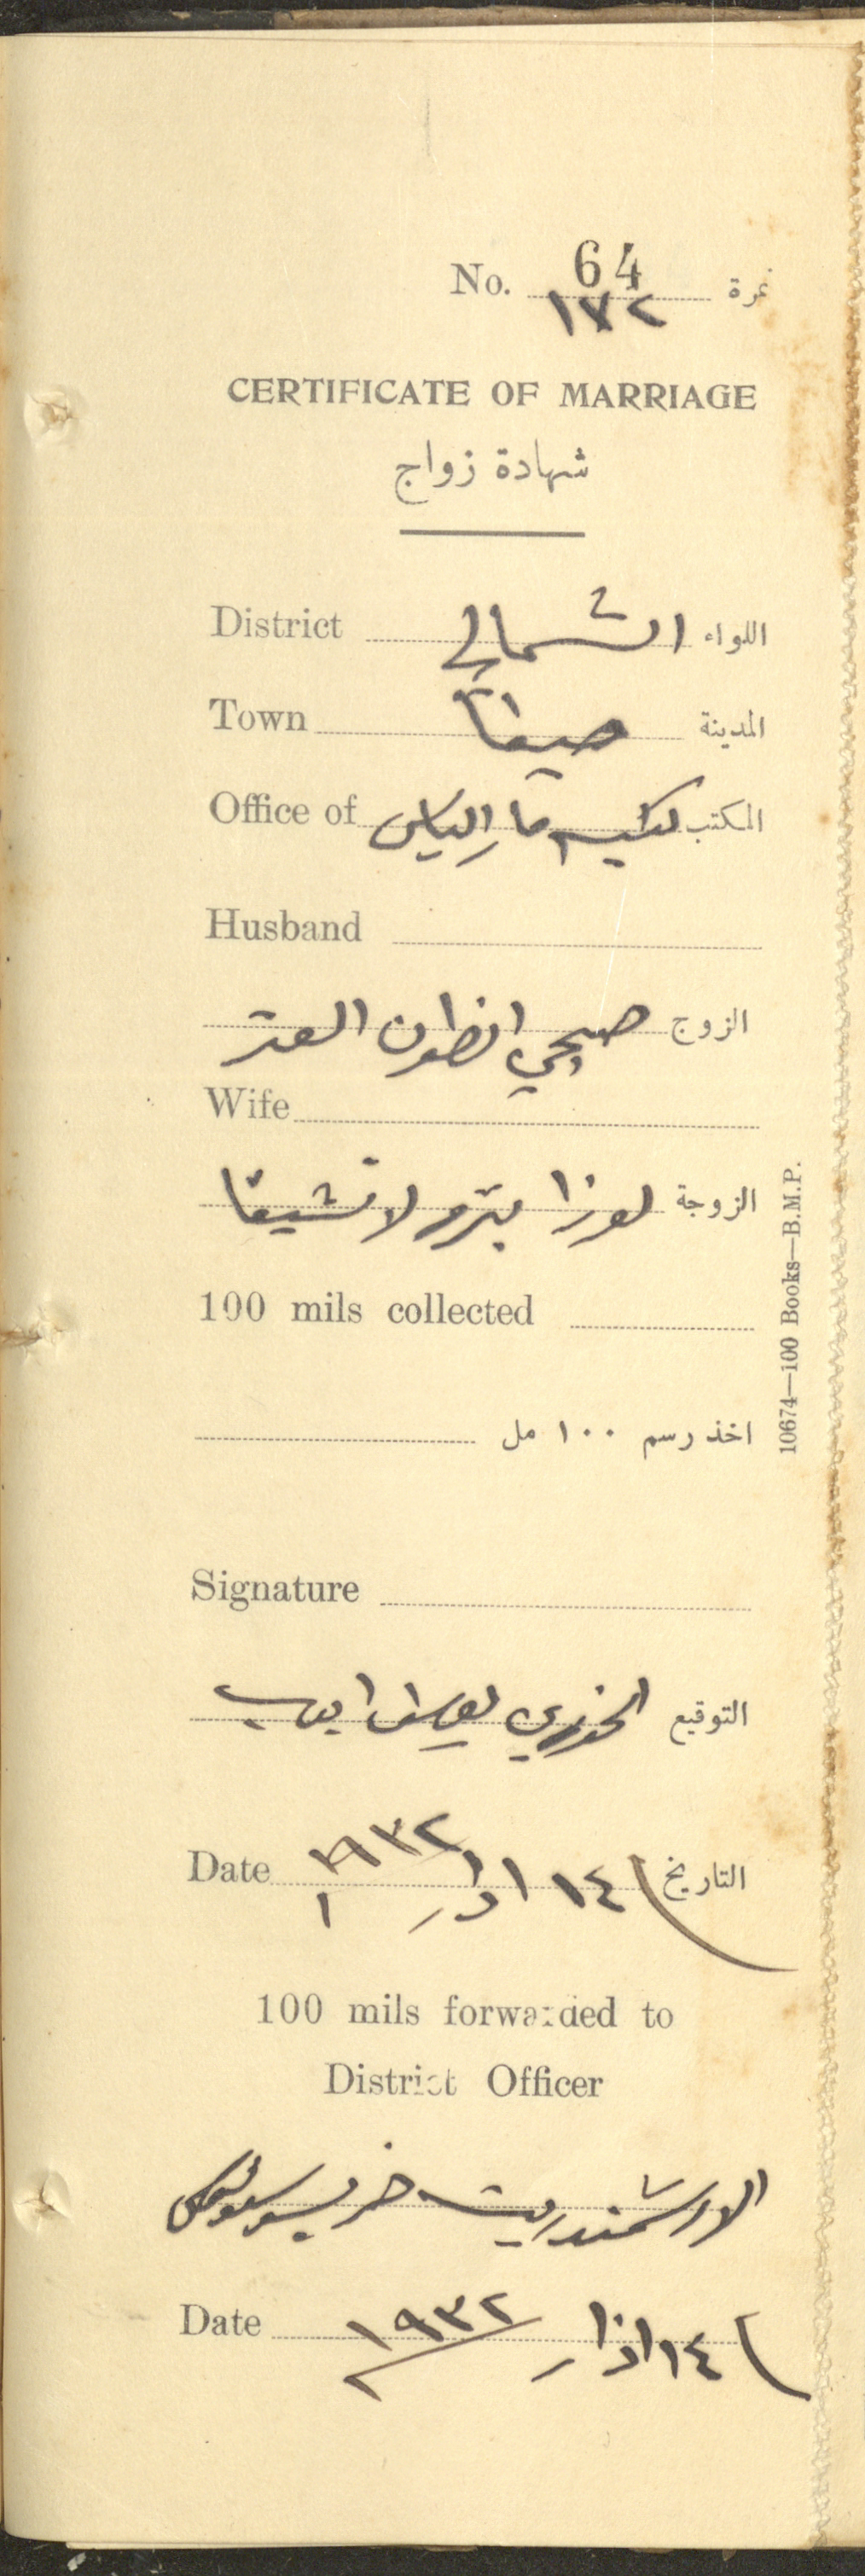 No. 64 نمرة
١٧٢
CERTIFICATE OF MARRIAGE
شهادة زواج
District الشمالي اللواء
Town حيفا المدينة
Office of كنيسة مار الياس المكتب
Husband
الزوج صبحي انطون
Wife
الزوجة لورزا بترو
100 mils collected
اخذ رسم ١٠٠ مل
Signature
التوقيع الخوري يوسف ايوب
Date ١٤ اذار ١٩٣٢ التاريخ
100 mils forwarded to
District Officer
الارشمندريت
Date ١٤ اذار ١٩٣٢
10674—100 Books—B.M.P.